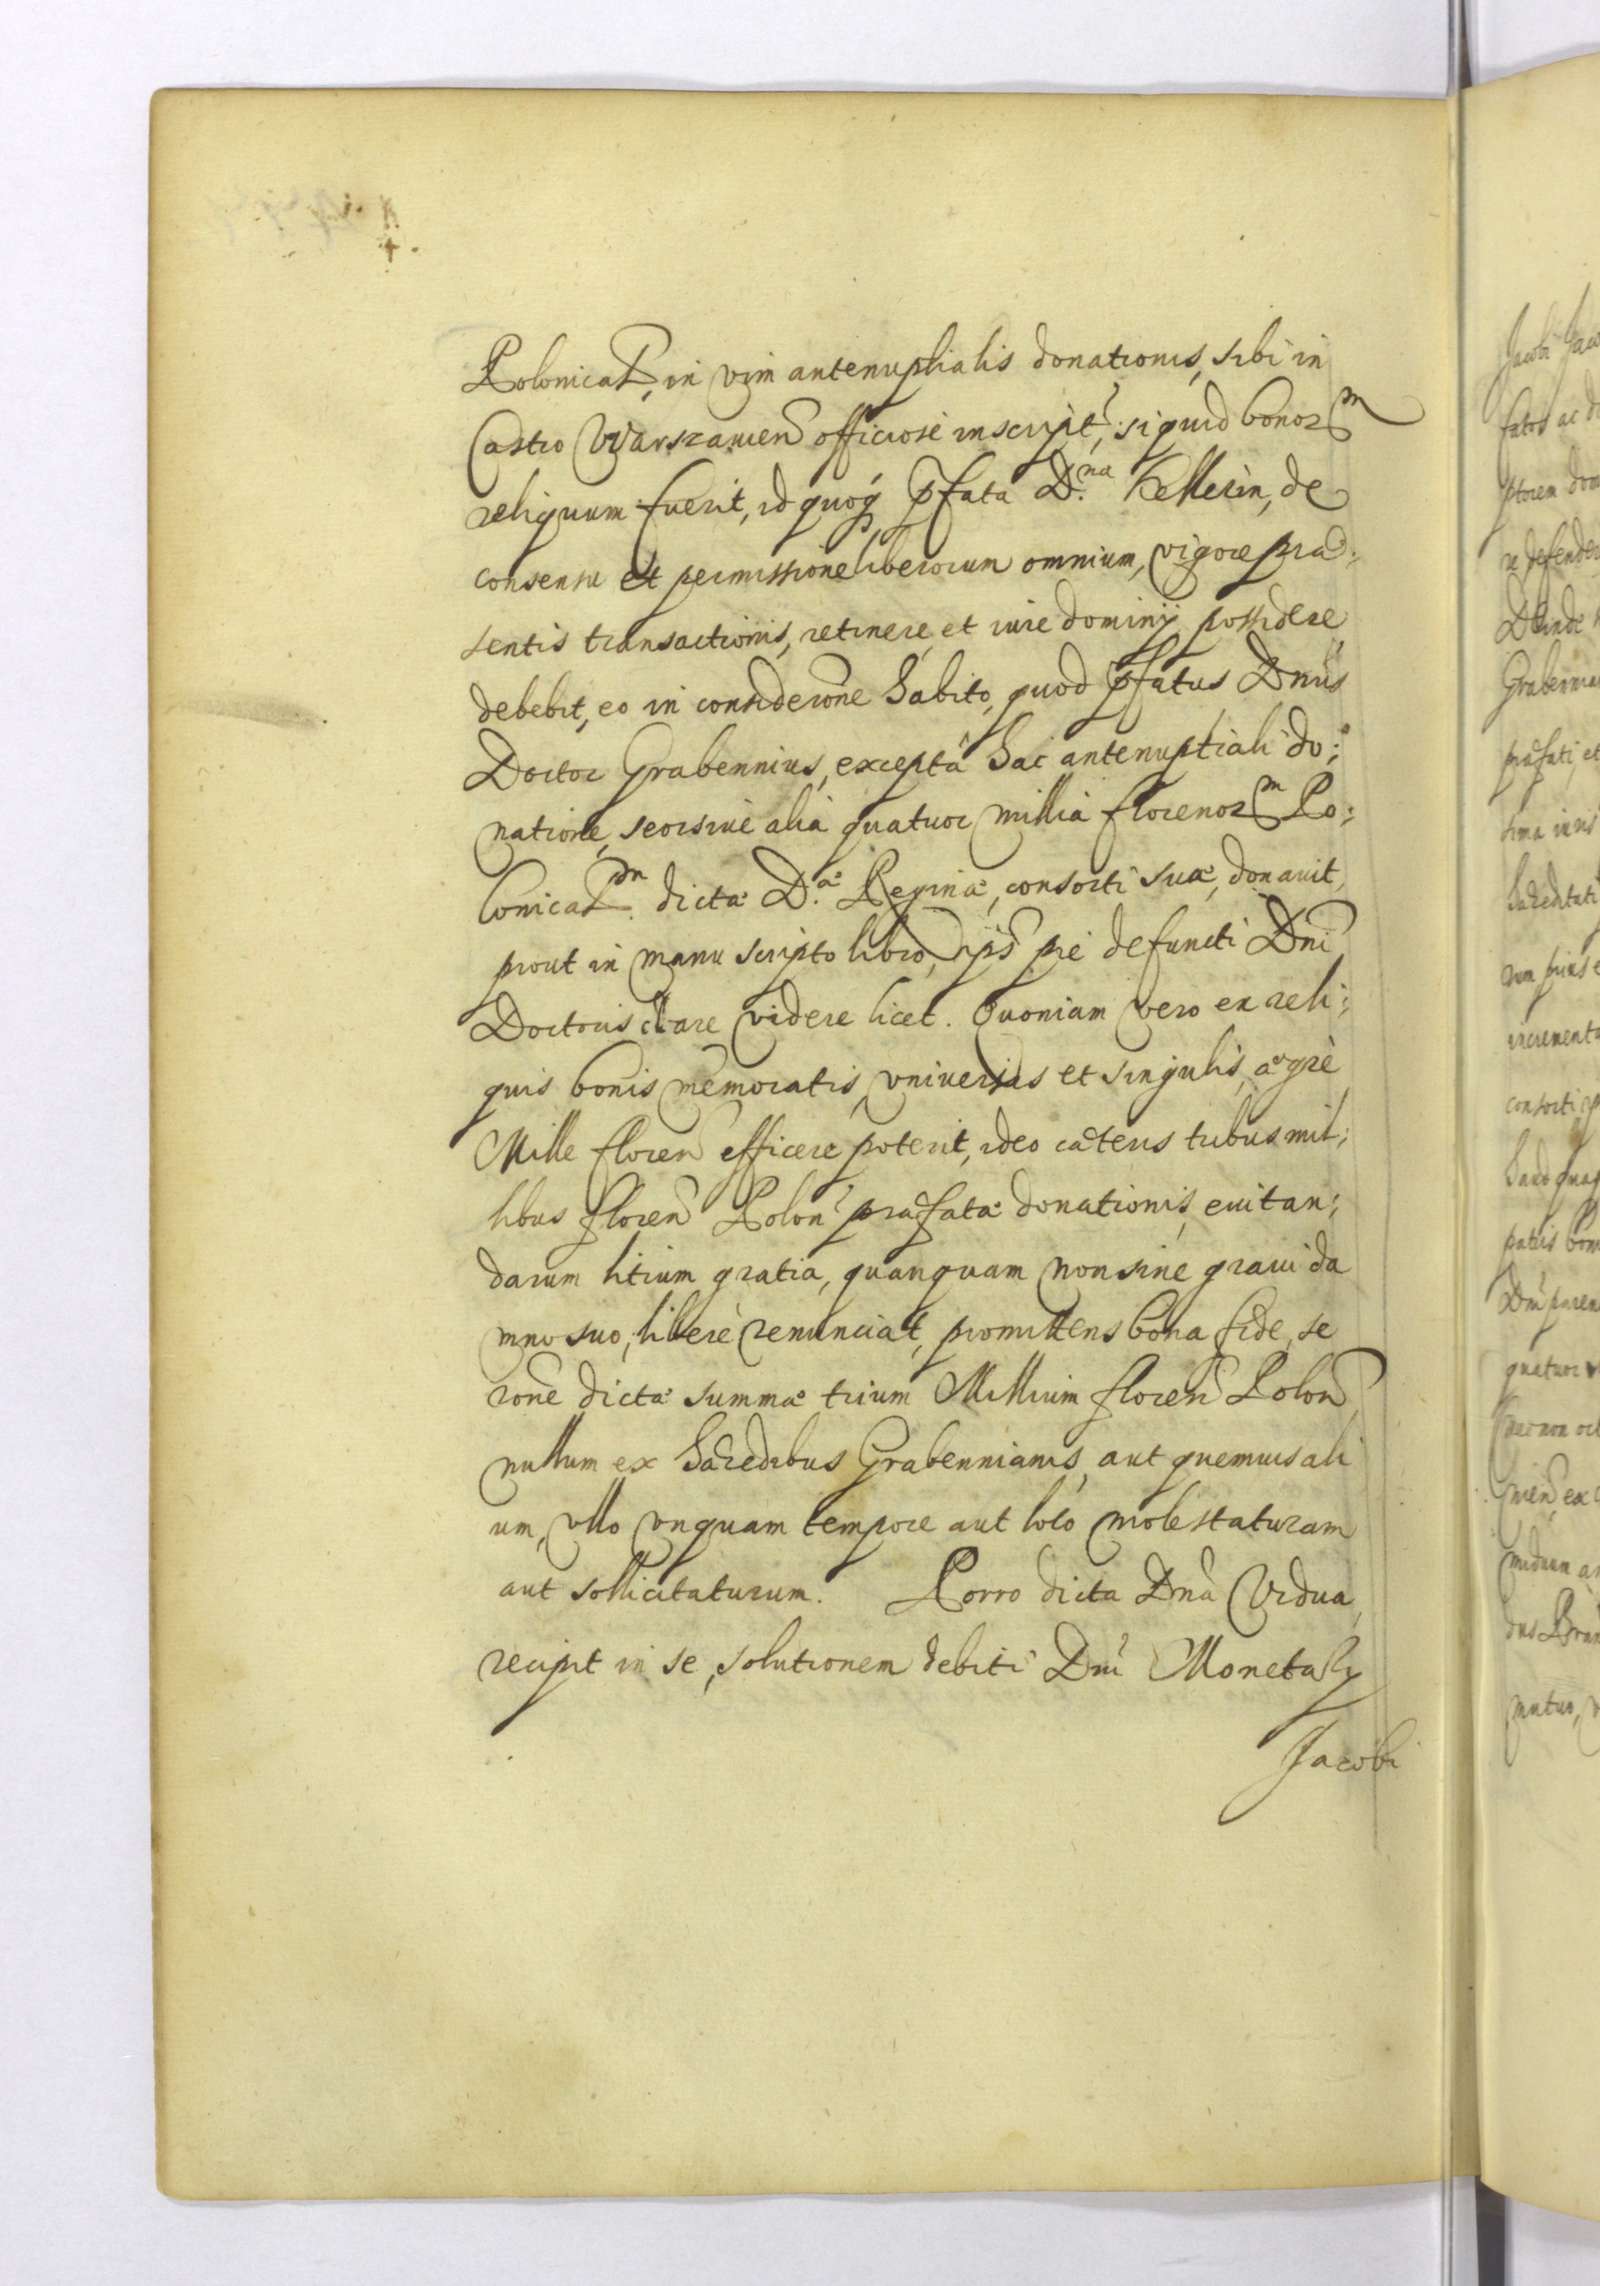 Polonical, in vim antenuptialis donationis, sibi in
Castro Warszauien officiose inscript, siquid bonorm
reliquum fuerit, id quoq pfata D.na Kellerin, de
consensu et permissione liberorum omnium, vigore præ:
sentis transactionis, retinere, et iure dominij possidere
debebit, eo in considerone habito, quod pfatus Dnus
Doctor Grabennius, exceptâ hac antenuptiali do:
natione, seorsive alia quatuor millia florenorm Po:
lonicalm dictæ D.æ Reginæ, consorti suæ, donavit,
prout in manu scripto libro, ips pie defuncti Dni
Doctoris clare videre licet. Quoniam vero ex reli:
quis bonis memoratis, vniversis et singulis, ægrè
Mille floren efficere poterit, ideo cæteris tribus mil:
libus floren Polon præfatæ donationis, euitan:
darum litium gratia, quanquam non sine graui da
mno suo, liberè renunciat, promittens bona fide, se
rone dictæ summæ trium Millium floren Polon
nullum ex hæredibus Grabennianis, aut quemuis ali
um, vllo vnquam tempore aut loco molestaturam
aut sollicitaturum. Porro dicta Dna Vidua,
recipit in se, solutionem debiti Dni Monetarÿ
Jacobi
Jacobi Jaco
fatos ac d
ptorem dom
re defender
Deinde
Grabennia
præfati, et
hæreditati
num prius e
incrementa
consorti
haud quaq
patris bon
Dni paren
quatuor
necnon oct